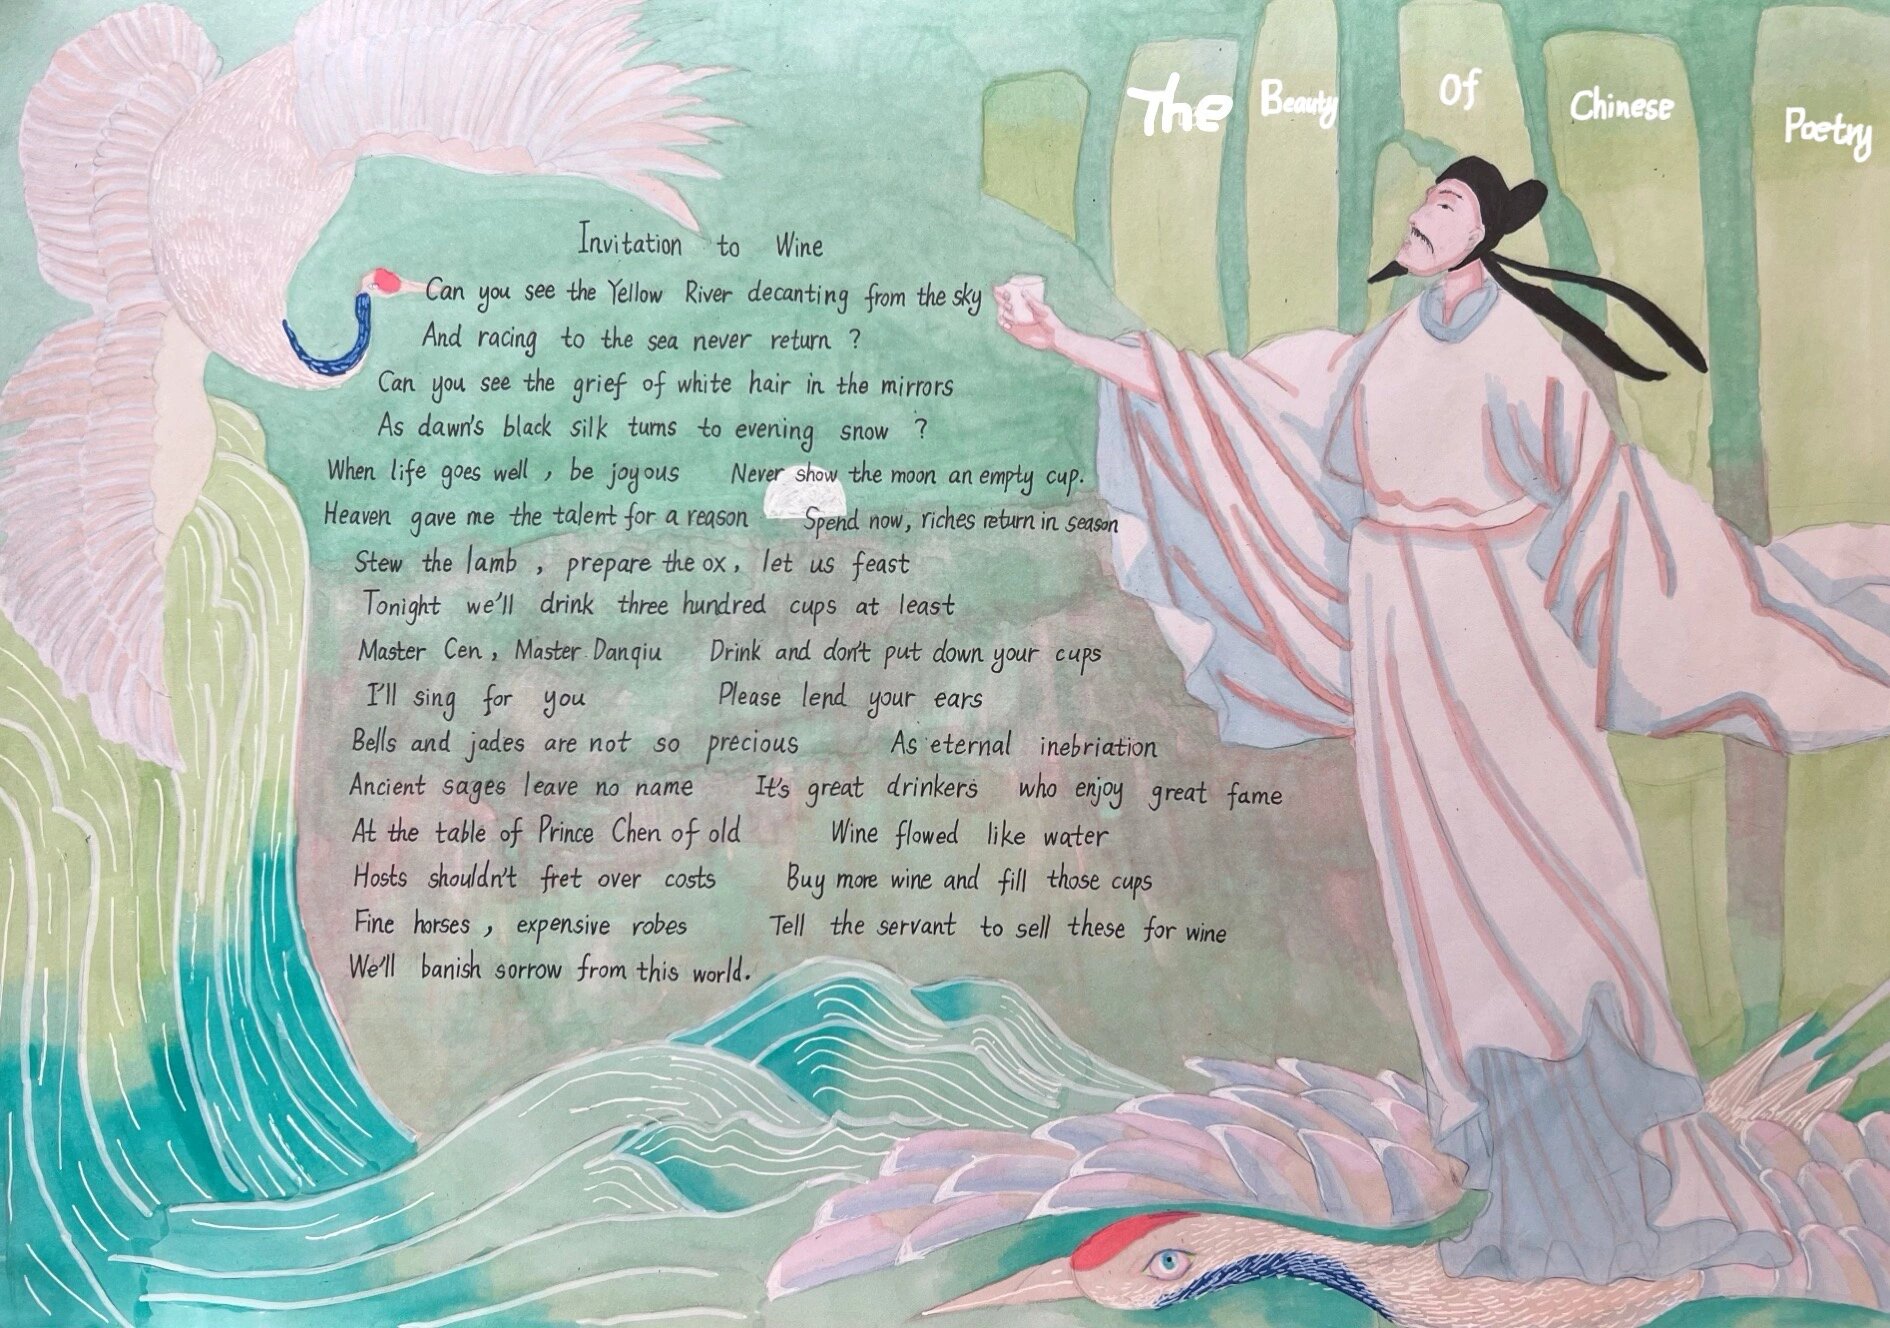 The Beauty Of Chinese Poetry
Invitation to Wine
Can you see the Yellow River decanting from the sky
And racing to the sea never return ?
Can you see the grief of white hair in the mirrors
As dawn's black silk turns to evening snow ?
When life goes well , be joyous Never show the moon an empty cup.
Heaven gave me the talent for a reason Spend now, riches return in season
Stew the lamb , prepare the ox , let us feast
Tonight we'll drink three hundred cups at least
Master Cen , Master Danqiu Drink and don't put down your cups
I'll sing for you Please lend your ears
Bells and jades are not so precious As eternal inebriation
Ancient sages leave no name It's great drinkers who enjoy great fame
At the table of Prince Chen of old Wine flowed like water
Hosts shouldn't fret over costs Buy more wine and fill those cups
Fine horses , expensive robes Tell the servant to sell these for wine
We'll banish sorrow from this world.